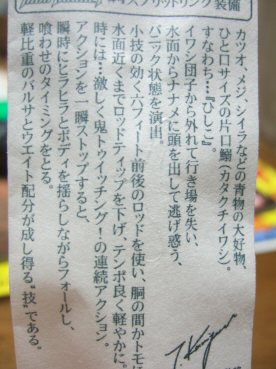 #4スプリットリング装備
カツオ、メジ、シイラなどの青物の大好物、
ひと口サイズの片口鰯(カタクチイワシ)。
すなわち…『ひしこ』。
イワシ団子から外れて行き場を失い、
水面からナナメに頭を出して逃げ惑う、
パニック状態を演出。
小技の効く6フィート前後のロッドを使い、胴の間かトモに
水面近くまでロッドティップを下げ、テンポ良く軽やかに。
時には…激しく鬼トゥイッチング!の連続アクション。
アクションを一瞬ストップすると、
瞬時にヒラヒラとボディを揺らしながらフォールし、
喰わせのタイミングをとる。
軽比重のバルサとウエイト配分が成し得る“技”である。